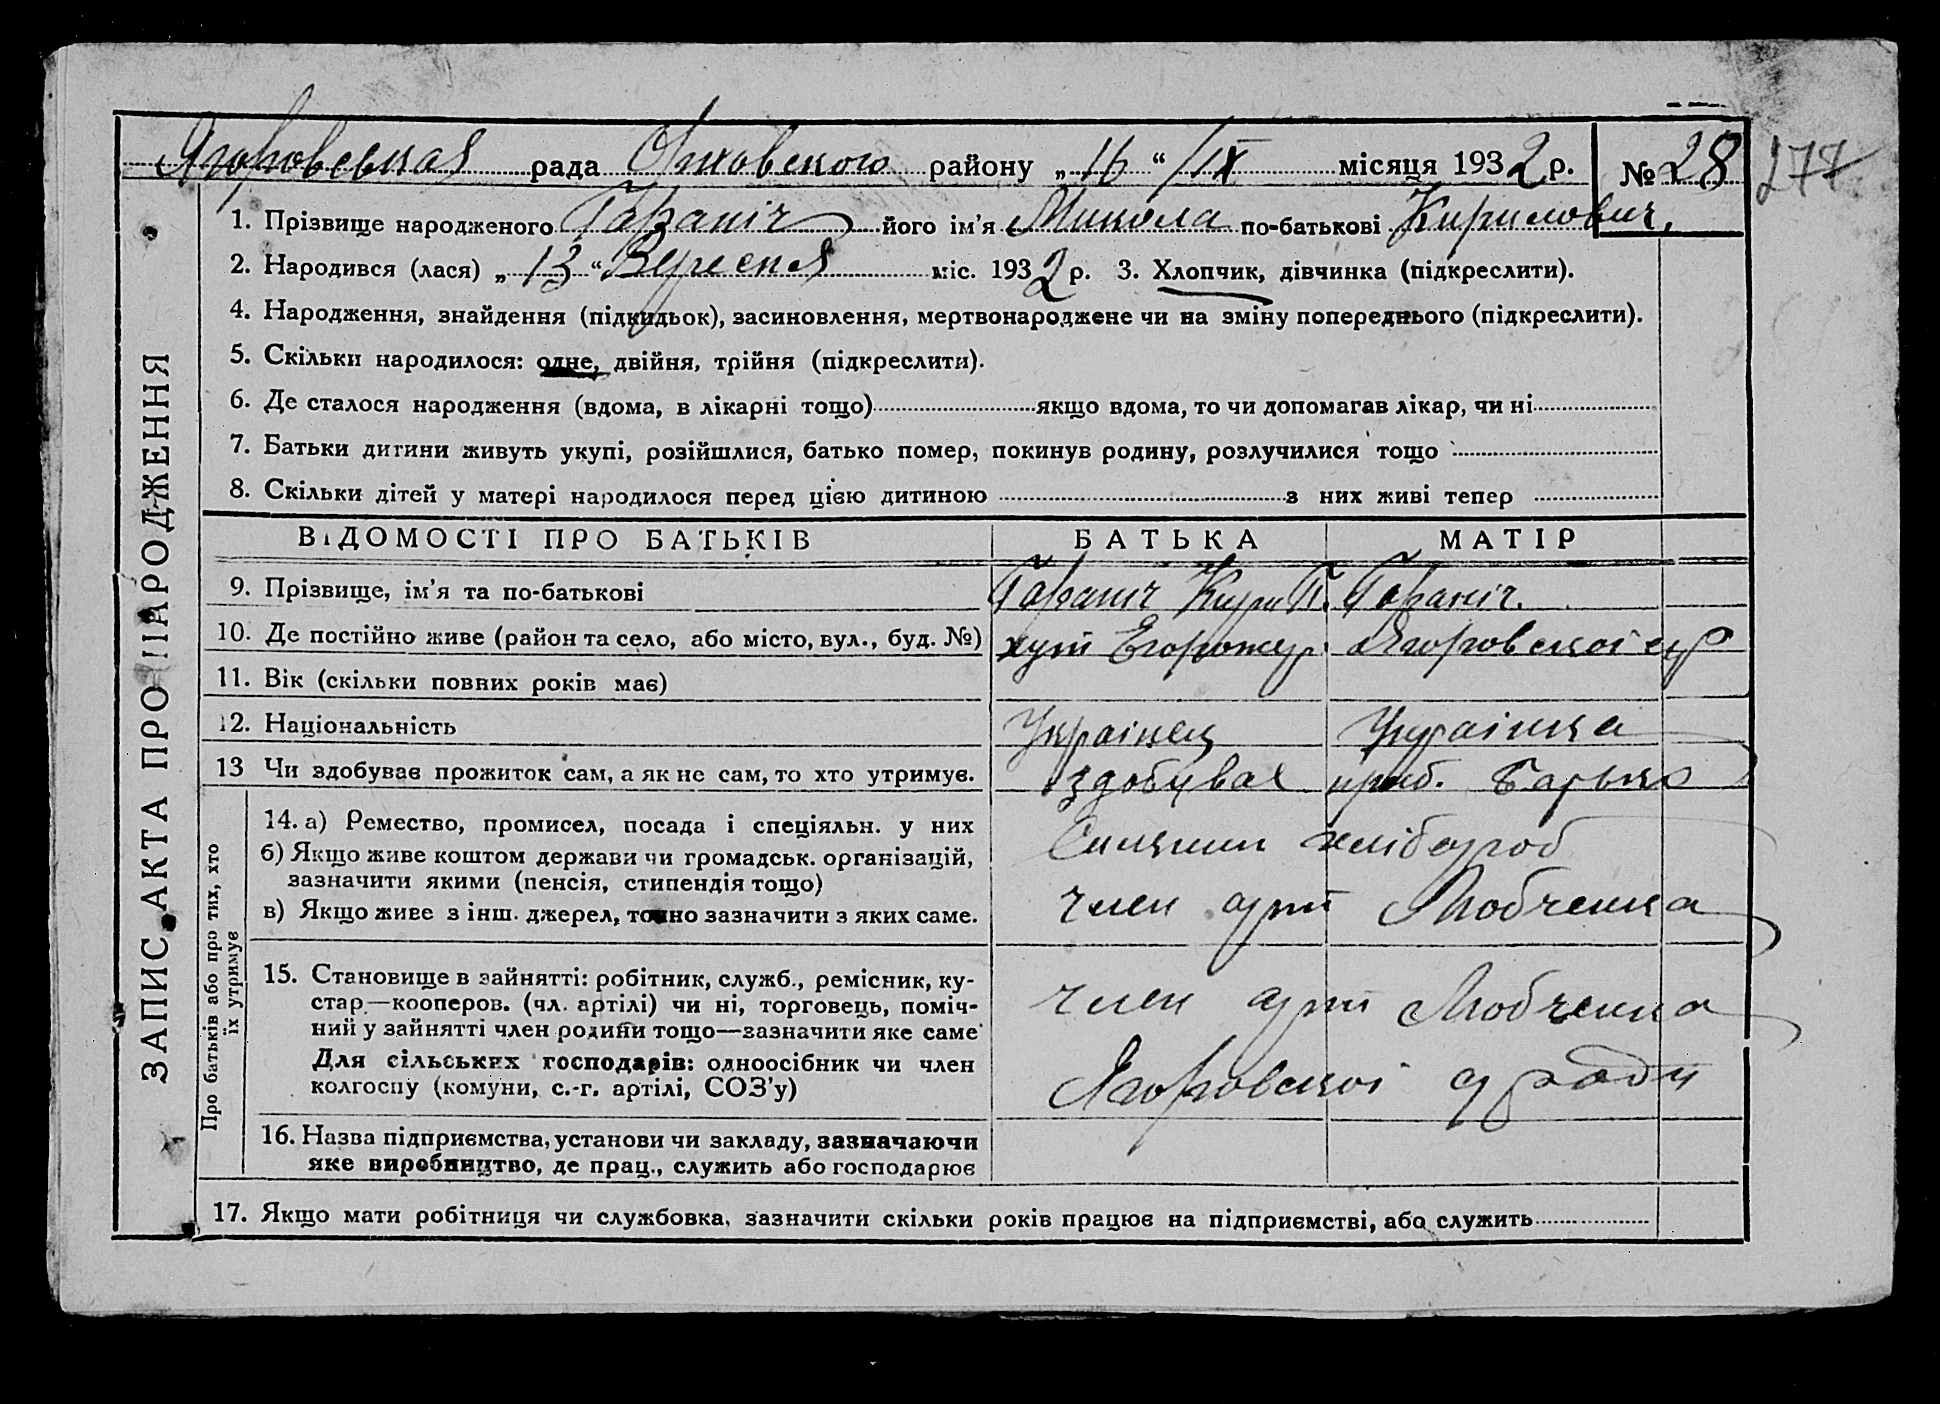 Ягоровская рада Оржовского району „16“ /IX місяця 1932 р. № 28 277
1. Прізвище народженого Гараніч його ім’я Микола по-батькові Кирилович,
2. Народився (лася) „13“ Вересня міс. 1932 р. 3. Хлопчик, дівчинка (підкреслити).
4. Народження, знайдення (підкидьок), засиновлення, мертвонароджене чи на зміну попереднього (підкреслити).
5. Скільки народилося: одне, двійня, трійня (підкреслити).
6. Де сталося народження (вдома, в лікарні тощо) якщо вдома, то чи допомагав лікар, чи ні
7. Батьки дитини живуть укупі, розійшлися, батько помер, покинув родину, розлучилися тощо
8. Скільки дітей у матері народилося перед цією дитиною з них живі тепер
ЗАПИС АКТА ПРО НАРОДЖЕННЯ
ВІДОМОСТІ ПРО БАТЬКІВ БАТЬКА МАТІР
9. Прізвище, ім’я та по-батькові Гараніч Кири П. Гараніч.
10. Де постійно живе (район та село, або місто, вул., буд. №) хут Ягоровскоі с/р
11. Вік (скільки повних років має)
12. Національність Украінец Украінка
13 Чи здобував прожиток сам, а як не сам, то хто утримує. здобувал приб. Батько
Про батьків або про тих, хто їх утримує
14. а) Ремество, промисел, посада і спеціяльн. у них хлібороб
б) Якщо живе коштом держави чи громадськ. організацій,
зазначити якими (пенсія, стипендія тощо)
в) Якщо живе з інш. джерел, точно зазначити з яких саме. член арт Любченка
15. Становище в зайнятті: робітник, служб., ремісник, ку-
стар—кооперов. (чл. артілі) чи ні, торговець, поміч- член арт Любченка
ний у зайнятті член родини тощо—зазначити яке саме
Для сільських господарів: одноосібник чи член Ягоровскоі с/ради
колгоспу (комуни, с.-г. артілі, СОЗ’у)
16. Назва підприємства, установи чи закладу, зазначаючи
яке виробництво, де прац., служить або господарює
17. Якщо мати робітниця чи службовка, зазначити скільки років працює на підприємстві, або служить